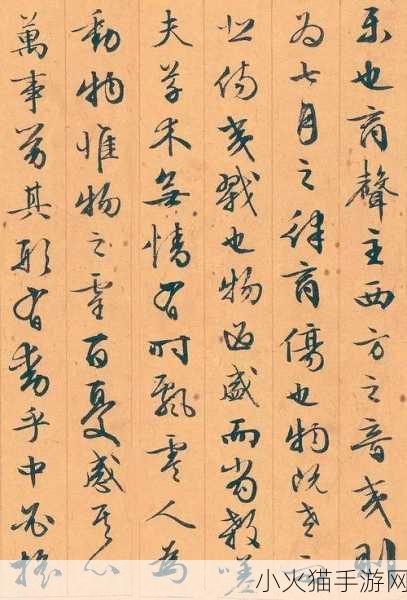 樂也商聲主西方之音夷則
為七月之律商傷也物既老而
悲傷夷戮也物過盛而當殺嗟
夫草木無情有時飄零人為
動物惟物之靈百憂感其心
萬事勞其形有動乎中必搖
小火猫手游网